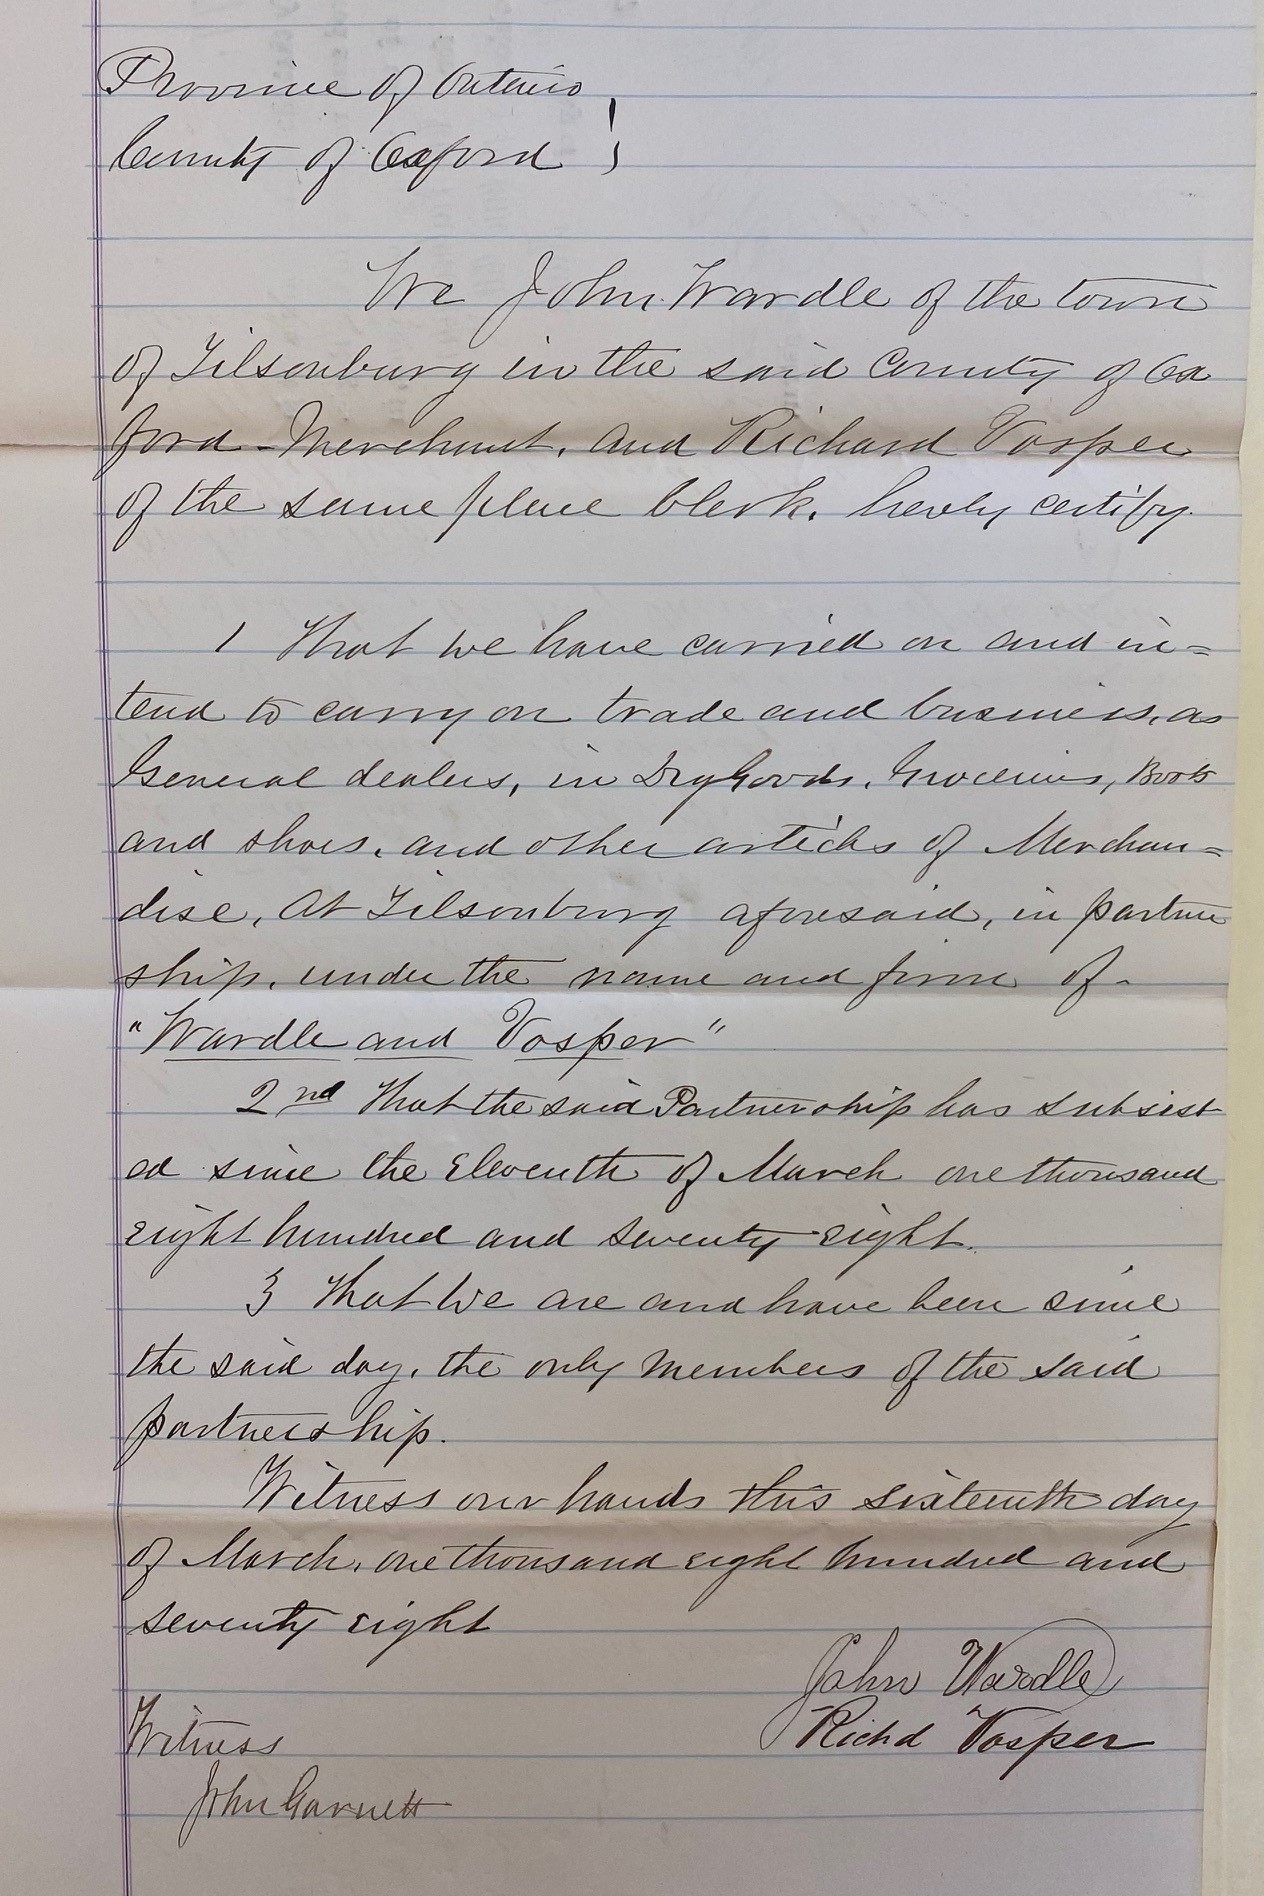 Province of Ontario
County of Oxford }
We John Wardle of the town
of Tilsonburg in the said County of Ox
ford - Merchant, and Richard Vosper
of the same place Clerk. hereby certify.
1 That we have carried on and in=
tend to carry on trade and business, as
General dealers, in Dry Goods, Groceries, Boots
and shoes, and other articles of Merchan=
dise, At Tilsonburg aforesaid, in partner
ship, under the name and firm of -
"Wardle and Vosper"
2nd That the said Partnership has subsist
ed since the Eleventh of March one thousand
eight hundred and seventy eight.
3 That we are and have been since
the said day, the only members of the said
partnership.
Witness our hands this sixteenth day
of March, one thousand eight hundred and
seventy eight
John Wardle
Richd Vosper
Witness
John Garnett